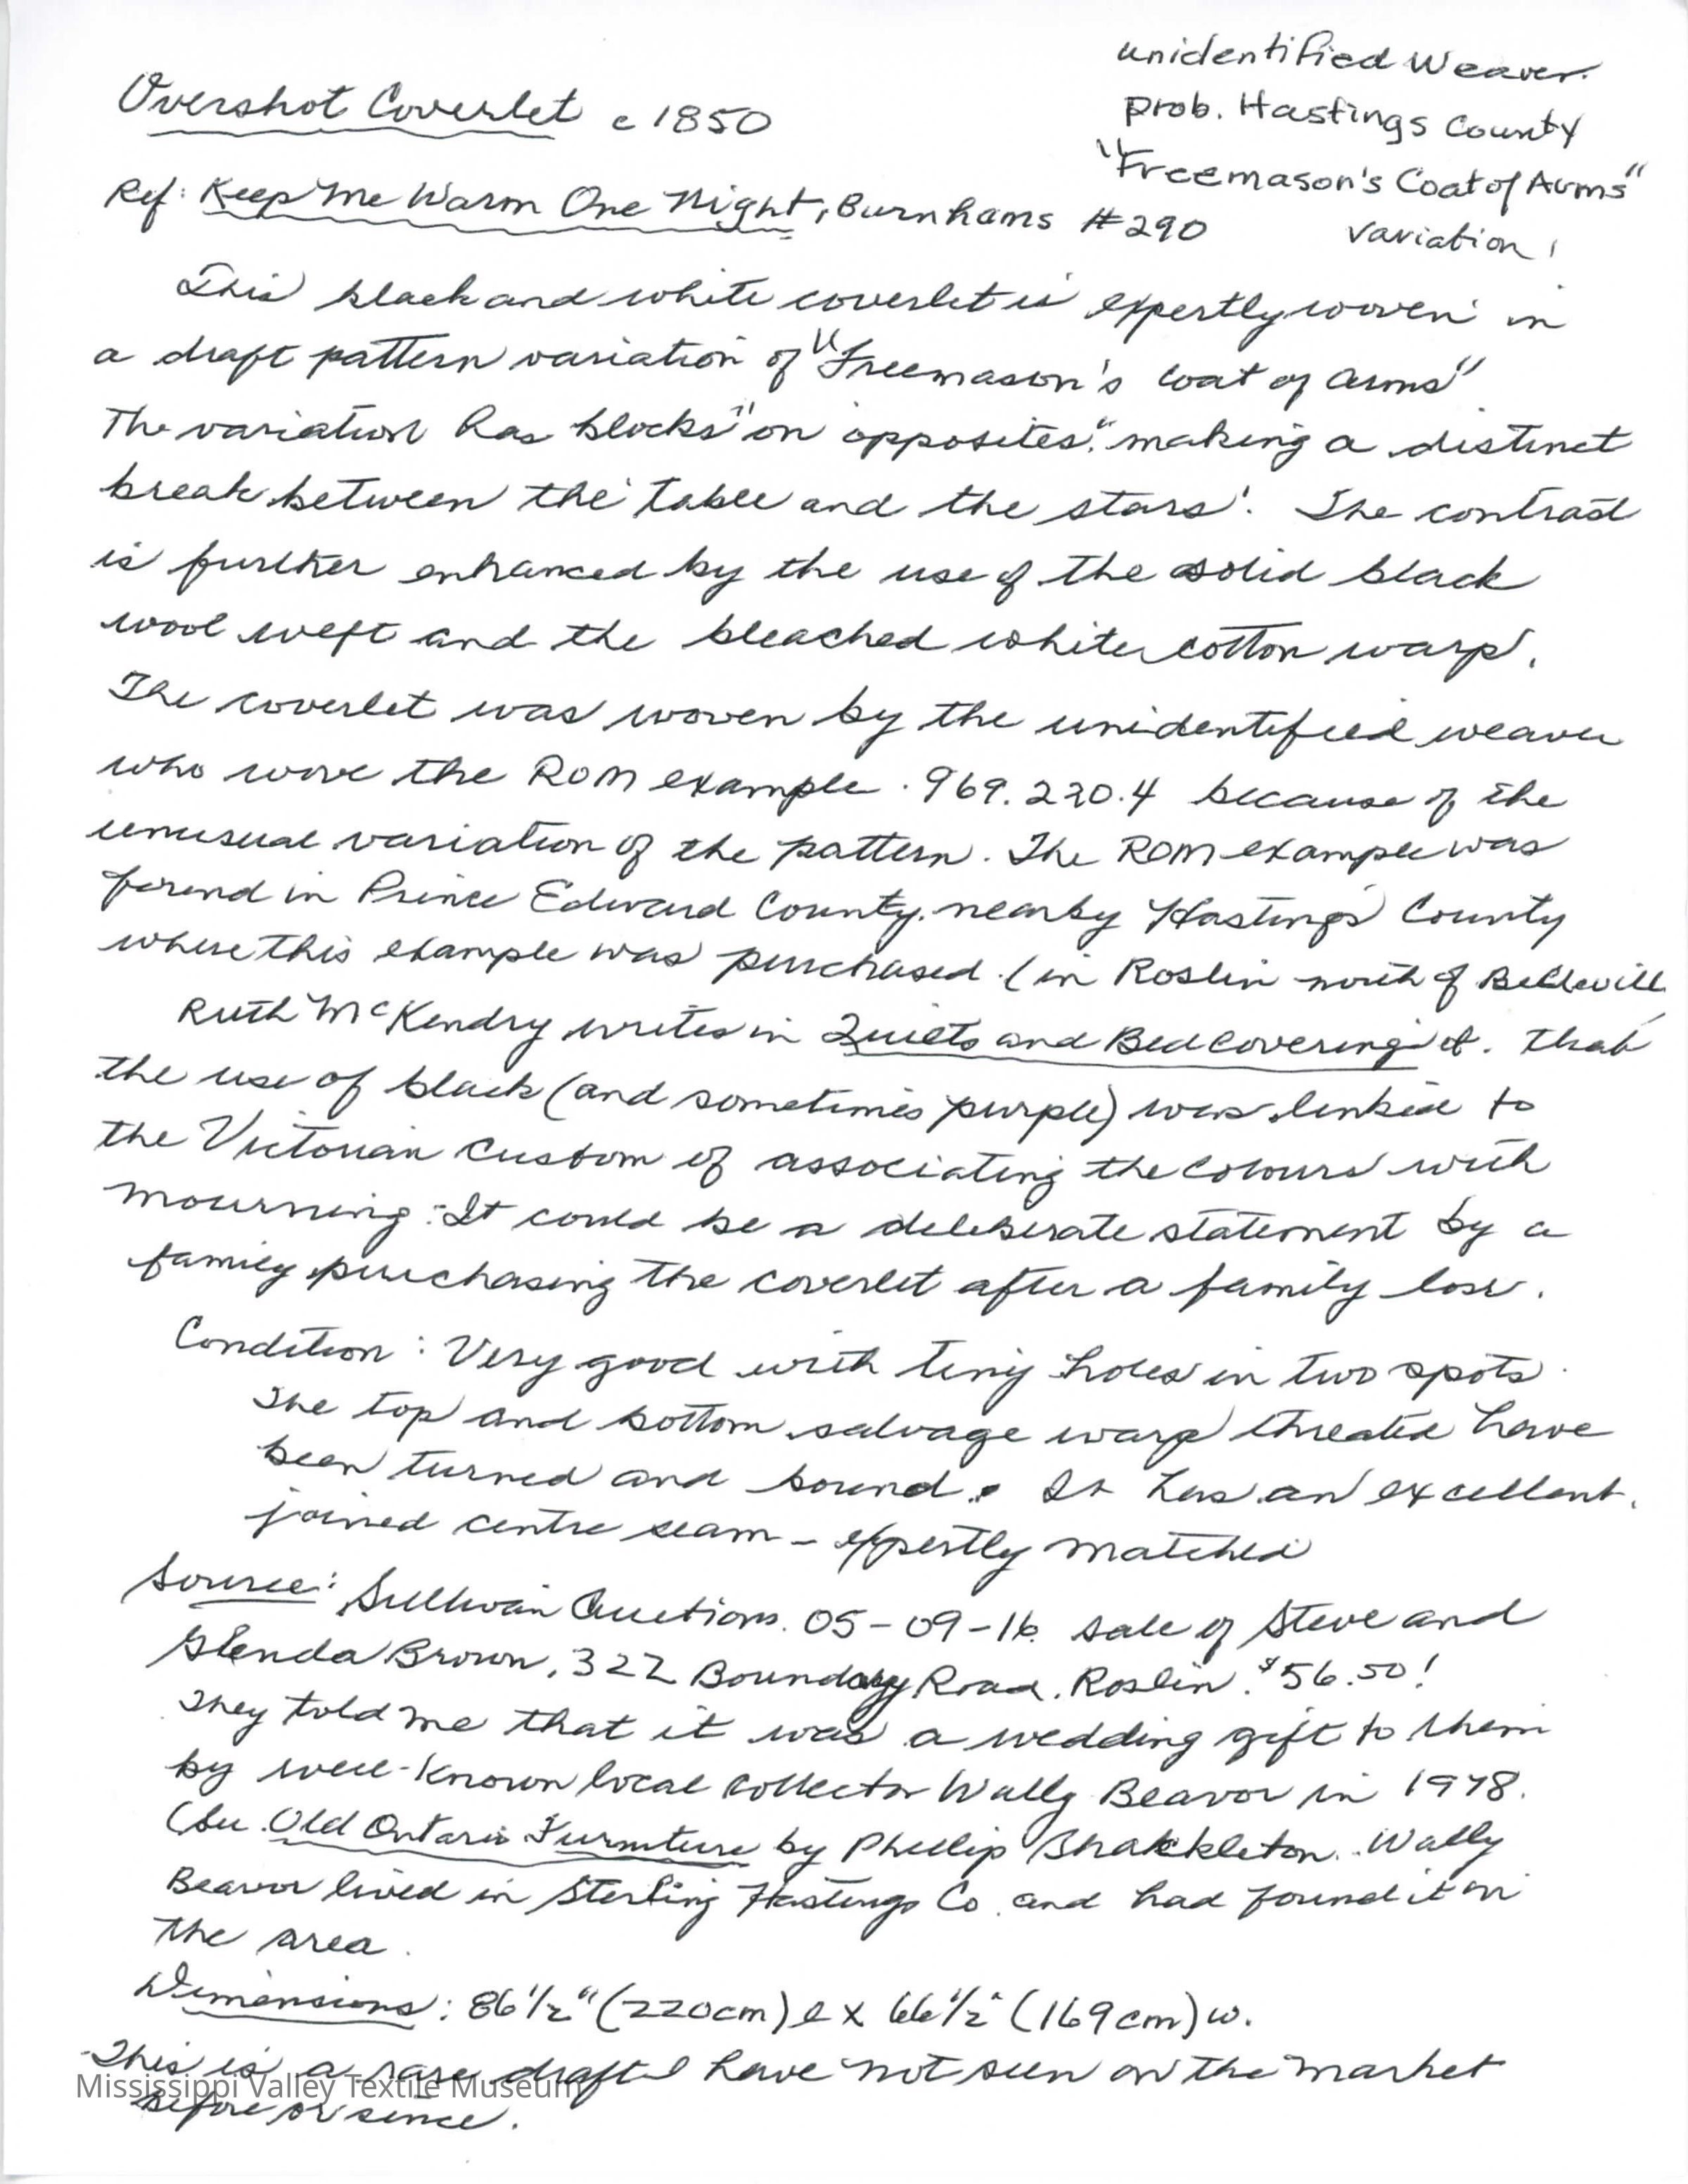 unidentified Weaver.
prob. Hastings County
"Freemason's Coat of Arms"
variation!
Overshot Coverlet c 1850
Ref: Keep Me Warm One Night, Burnhams #290
This black and white coverlet is expertly woven in
a draft pattern variation of "Freemason's Coat of Arms"
The variation has blocks "on opposites." making a distinct
break between the 'table and the stars'. The contrast
is further enhanced by the use of the solid black
wool weft and the bleached white cotton warp.
The coverlet was woven by the unidentified weaver
who wove the ROM example. 969.220.4 because of the
unusual variation of the pattern. The ROM example was
found in Prince Edward County, nearby Hastings County
where this example was purchased. (in Roslin north of Belleville
Ruth McKendry writes in Quilts and Bedcoverings that
the use of black (and sometimes purple) was linked to
the Victorian custom of associating the colours with
mourning. It could be a deliberate statement by a
family purchasing the coverlet after a family loss.
Condition: Very good with tiny holes in two spots
The top and bottom salvage warp threads have
been turned and bound. It has an excellent.
joined centre seam - expertly matched
Source: Sullivan Auctions. 05-09-16 sale of Steve and
Glenda Brown, 322 Boundary Road. Roslin. $56.50!
They told me that it was a wedding gift to them
by well-known local collector Wally Beavor in 1978.
(See Old Ontario Furniture by Phillip Shakkleton. Wally
Beavor lived in Sterling Hastings Co. and had found it in
the area.
Dimensions: 86 1/2" (220cm) l x 66 1/2" (169cm) w.
This is a rare draft I have not seen on the market
before or since.
Mississippi Valley Textile Museum